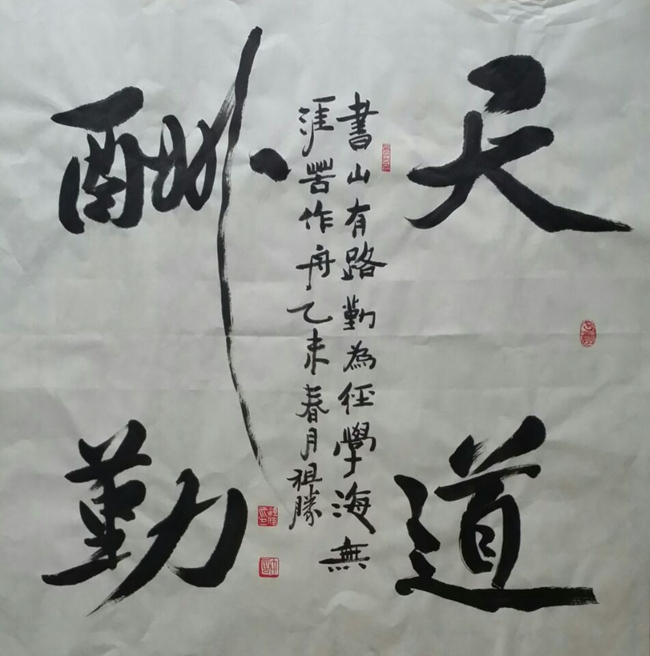 天道
酬勤
書山有路勤為径學海無
涯苦作舟乙未春月祖勝